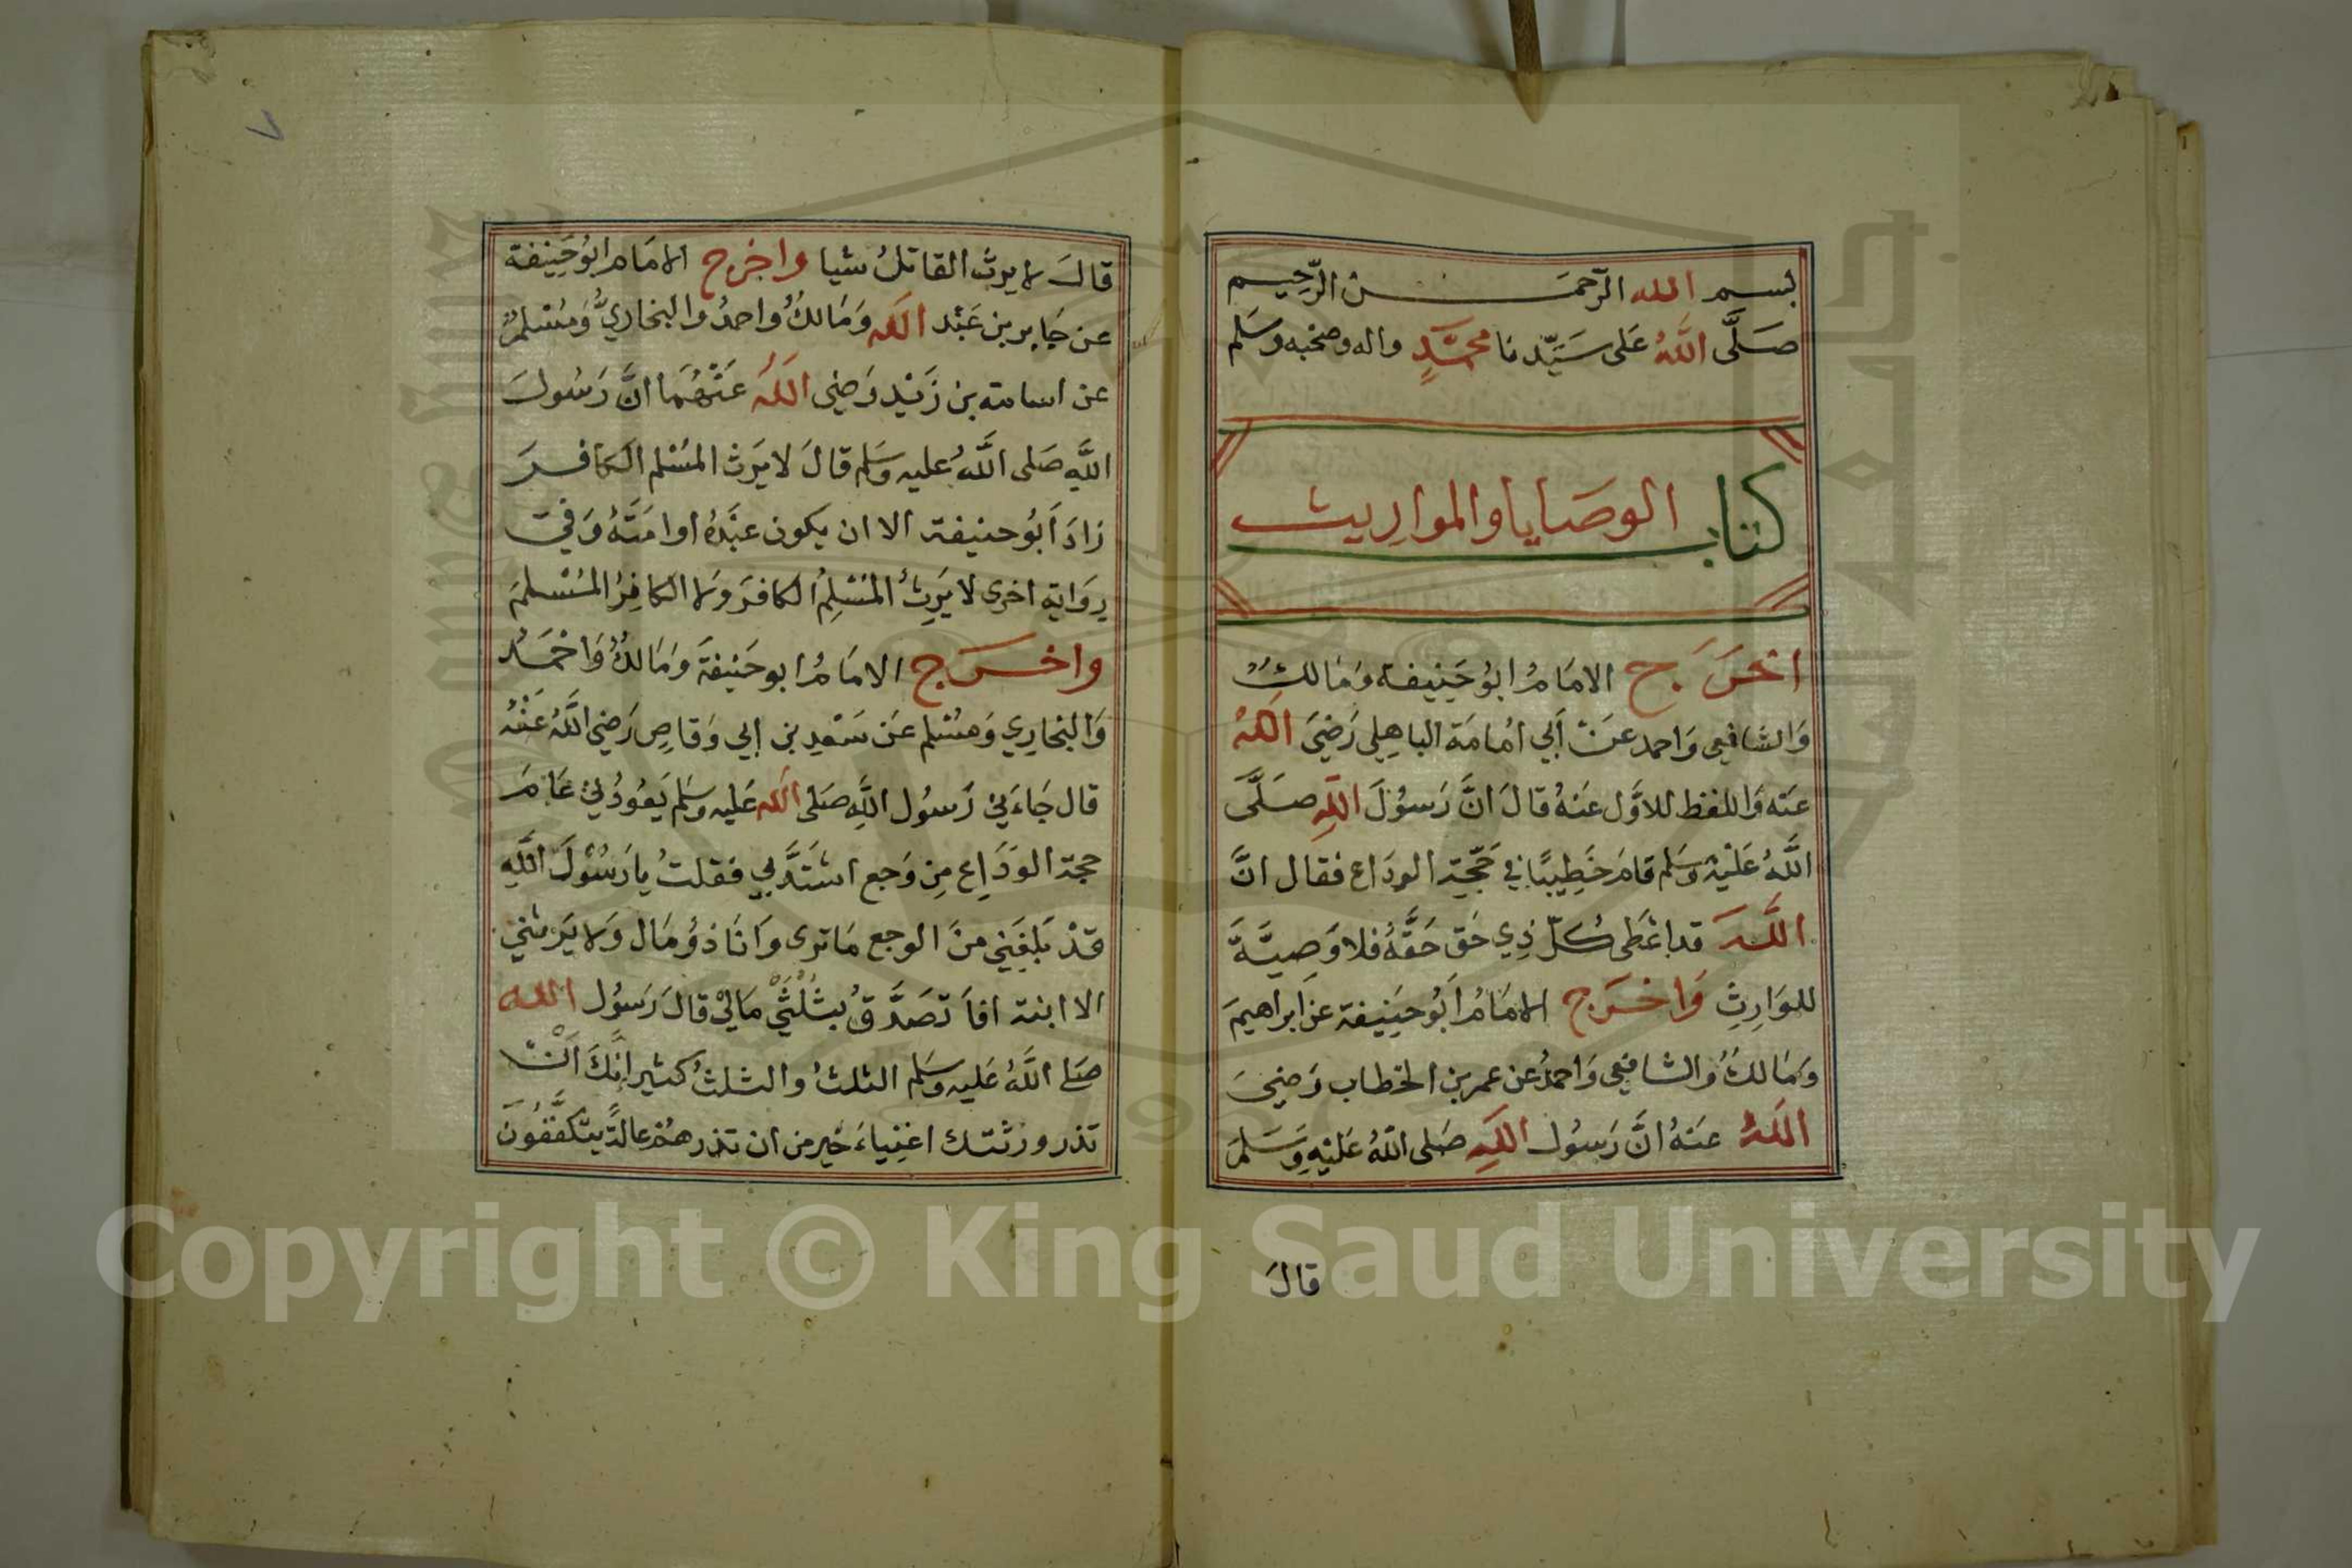 بسم الله الرّحمـن الرّحيم
صَلَّى اللَّهُ عَلى سَيِّدنَا محمَّدٍ واله وصحبه وسَلم
كتاب الوصَايا والمواريث
اخرَج الامَامُ ابُو حَنِيفة وَمَالكٌ
وَالشافعي وَاحمد عَنْ أبي امُامَة الباهِلي رَضيَ اللهُ
عنَه وَاللفظ للاوَّل عنَهُ قالَ انَّ رَسوُلَ اللهِ صَلَّى
اللَّهُ عَلَيْهِ وَسَلم قامَ خَطِيبًا في حَجّةِ الودَاع فقال انَّ
اللَّهَ قد اعْطى كلّ ذِي حَق حَقَّهُ فلا وَصِيَّةَ
للوَارِثِ وَاخرَج الامَامُ اَبُو حَنِيفة عن ابراهيمَ
وَمَالكٌ وَالشافِعي وَاحمدُ عن عمر بن الخطاب رَضيَ
اللهُ عنَهُ انَّ رَسوُل اللهِ صَلى اللهُ عَليْهِ وَسَلمَ
قالَ
٧
قالَ لا يرثُ القاتلُ شيا واخرج الامَام ابُو حَنِيفة
عن جَابر بن عَبْد الله وَمَالكُ واحمدُ والبخاريُّ وَمُسْلمٌ
عن اسامة بن زَيْد رَضي اللهُ عَنْهُمَا انَّ رَسُولَ
اللَّهِ صَلى اللَّهُ عليه وسَلم قالَ لا يَرث المُسْلم الكافرَ
زادَ اَبُو حنيفة الا ان يكون عبَدَهُ او امَتَهُ وَفي
رِوَاية اخرى لا يَرِثُ المُسْلِمُ الكافرَ وَلا الكافِرُ المُسْلمَ
واخرَج الامَامُ ابو حَنِيفةَ وَمَالكٌ وَاحْمَدُ
وَالبخارِي وَمسُلم عَن سَعْدِ بن ابي وَقاصٍ رَضي اللَّهُ عَنْهُ
قال جَاءَني رَسوُل اللَّهِ صَلى الله عَليه وسَلم يَعُودُني عَامَ
حجة الوَدَاعِ مِن وَجع اشتَدَّ بي فقلتُ يا رَسُولَ اللَّهِ
قدْ بَلغَني منَ الوجع مَا ترى وَانَا ذوُ مَال وَلا يَرثني
الا ابنة افاَ تصَدَّقُ بثُلُثَيْ مَاليْ قالَ رَسوُل الله
صَلى اللَّهُ عَليه وسَلم الثلثُ والثلثُ كثير اِنَّكَ اَنْ
تذر ورثتك اغنِياءَ خير من ان تذرهمُ عالةً يتكَفَّفُونَ
Copyright © King Saud University